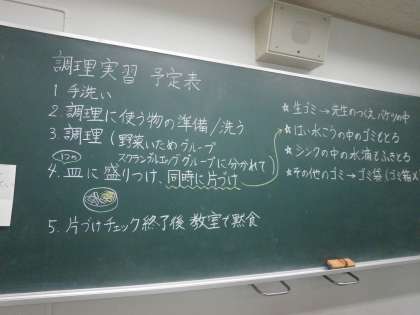 調理実習 予定表
1 手洗い
2. 調理に使う物の準備/洗う
3. 調理(野菜いためグループ
スクランブルエッググループに分かれて)
1つの
4. 皿に盛りつけ、同時に片づけ
5. 片づけチェック終了後 教室で黙食
★生ゴミ→先生のつくえ バケツの中
★はい水こうの中のゴミもとる
★シンクの中の水滴もふきとる
★その他のゴミ→ゴミ袋(ゴミ箱